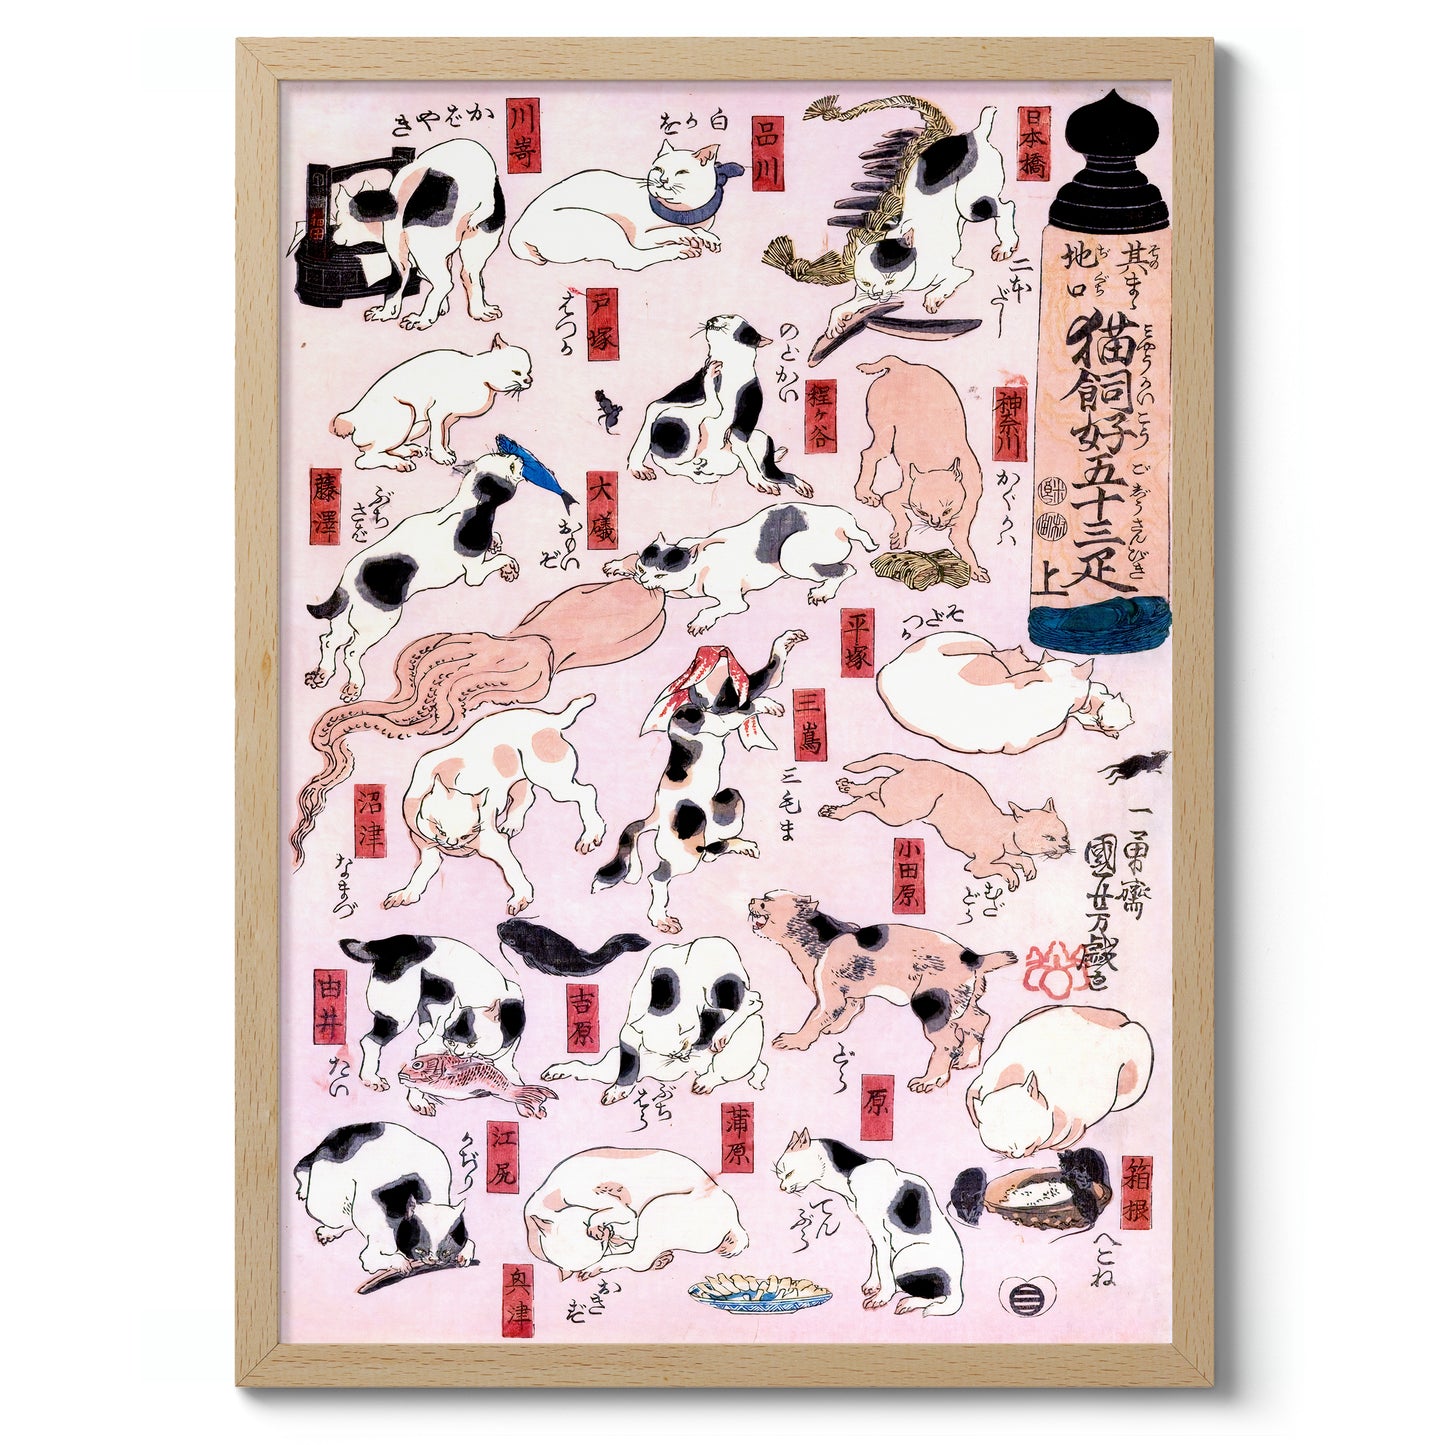 其まゝ地口
そのぢぐち
猫飼好五十三疋
みやうかいこうごじうさんびき
上
日本橋
二本だし
品川
白かを
川嵜
かばやき
神奈川
かぐかハ
程ヶ谷
のどかい
戸塚
はつか
藤澤
ぶちさば
平塚
そだつか
大礒
おもいぞ
小田原
むだどら
箱根
へこね
三嶌
三毛ま
沼津
なまづ
原
どら
吉原
ぶちはら
蒲原
てんぷら
由井
たい
奥津
おきず
江尻
かぢり
一勇齋
國芳戯画